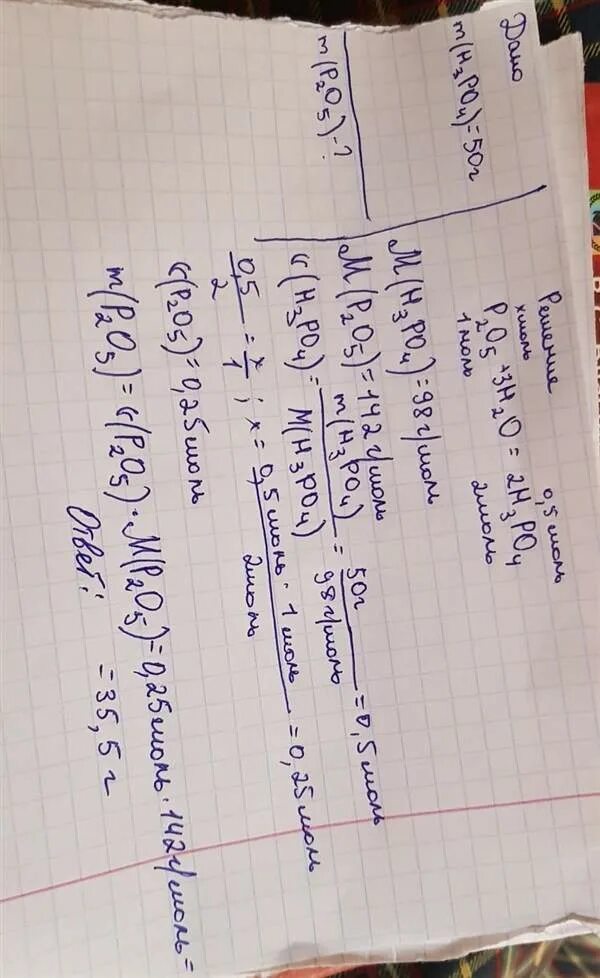 Дано
m(H₃PO₄)=50г
m(P₂O₅)-?
Решение
xмоль 0,5моль
P₂O₅ + 3H₂O = 2H₃PO₄
1моль 2моль
M(H₃PO₄)=98г/моль
M(P₂O₅)=142г/моль
ν(H₃PO₄)= m(H₃PO₄)/M(H₃PO₄) = 50г/98г/моль = 0,5моль
0,5/2 = x/1; x= 0,5моль·1моль/2моль = 0,25моль
ν(P₂O₅)=0,25моль
m(P₂O₅)=ν(P₂O₅)·M(P₂O₅)=0,25моль·142г/моль=
=35,5г
Ответ: